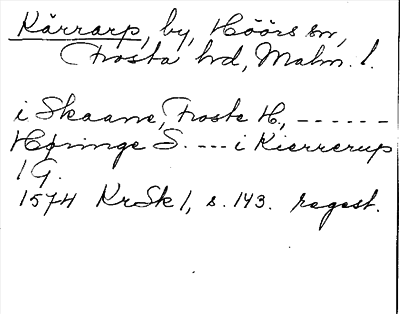 Kärrarp, by, Höörs sn,
Frosta hd, Malm. l.
i Skaane, Froste H, ------
Höringe S. --- i Kierrerup
1 G.
1574 KrSk 1, s. 143. regest.